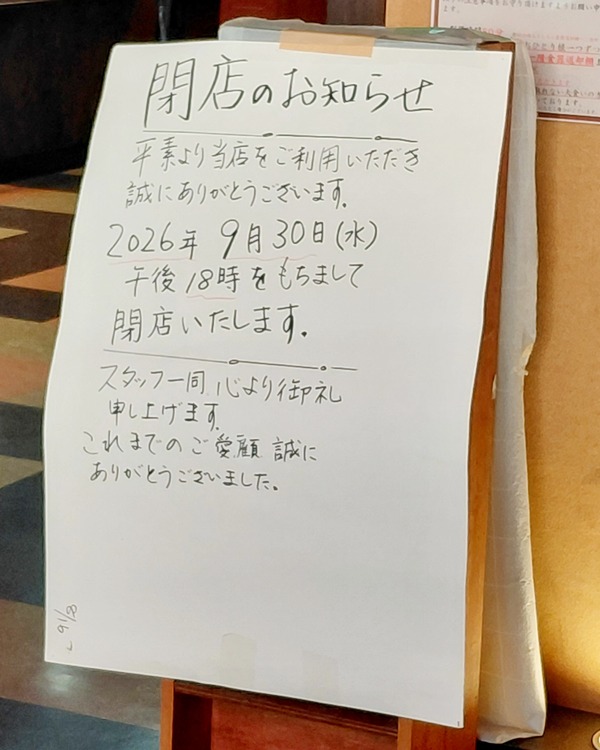 閉店のお知らせ
平素より当店をご利用いただき
誠にありがとうございます。
2026年 9月30日(水)
午後18時をもちまして
閉店いたします。
スタッフ一同 心より御礼
申し上げます。
これまでのご愛顧 誠に
ありがとうございました。